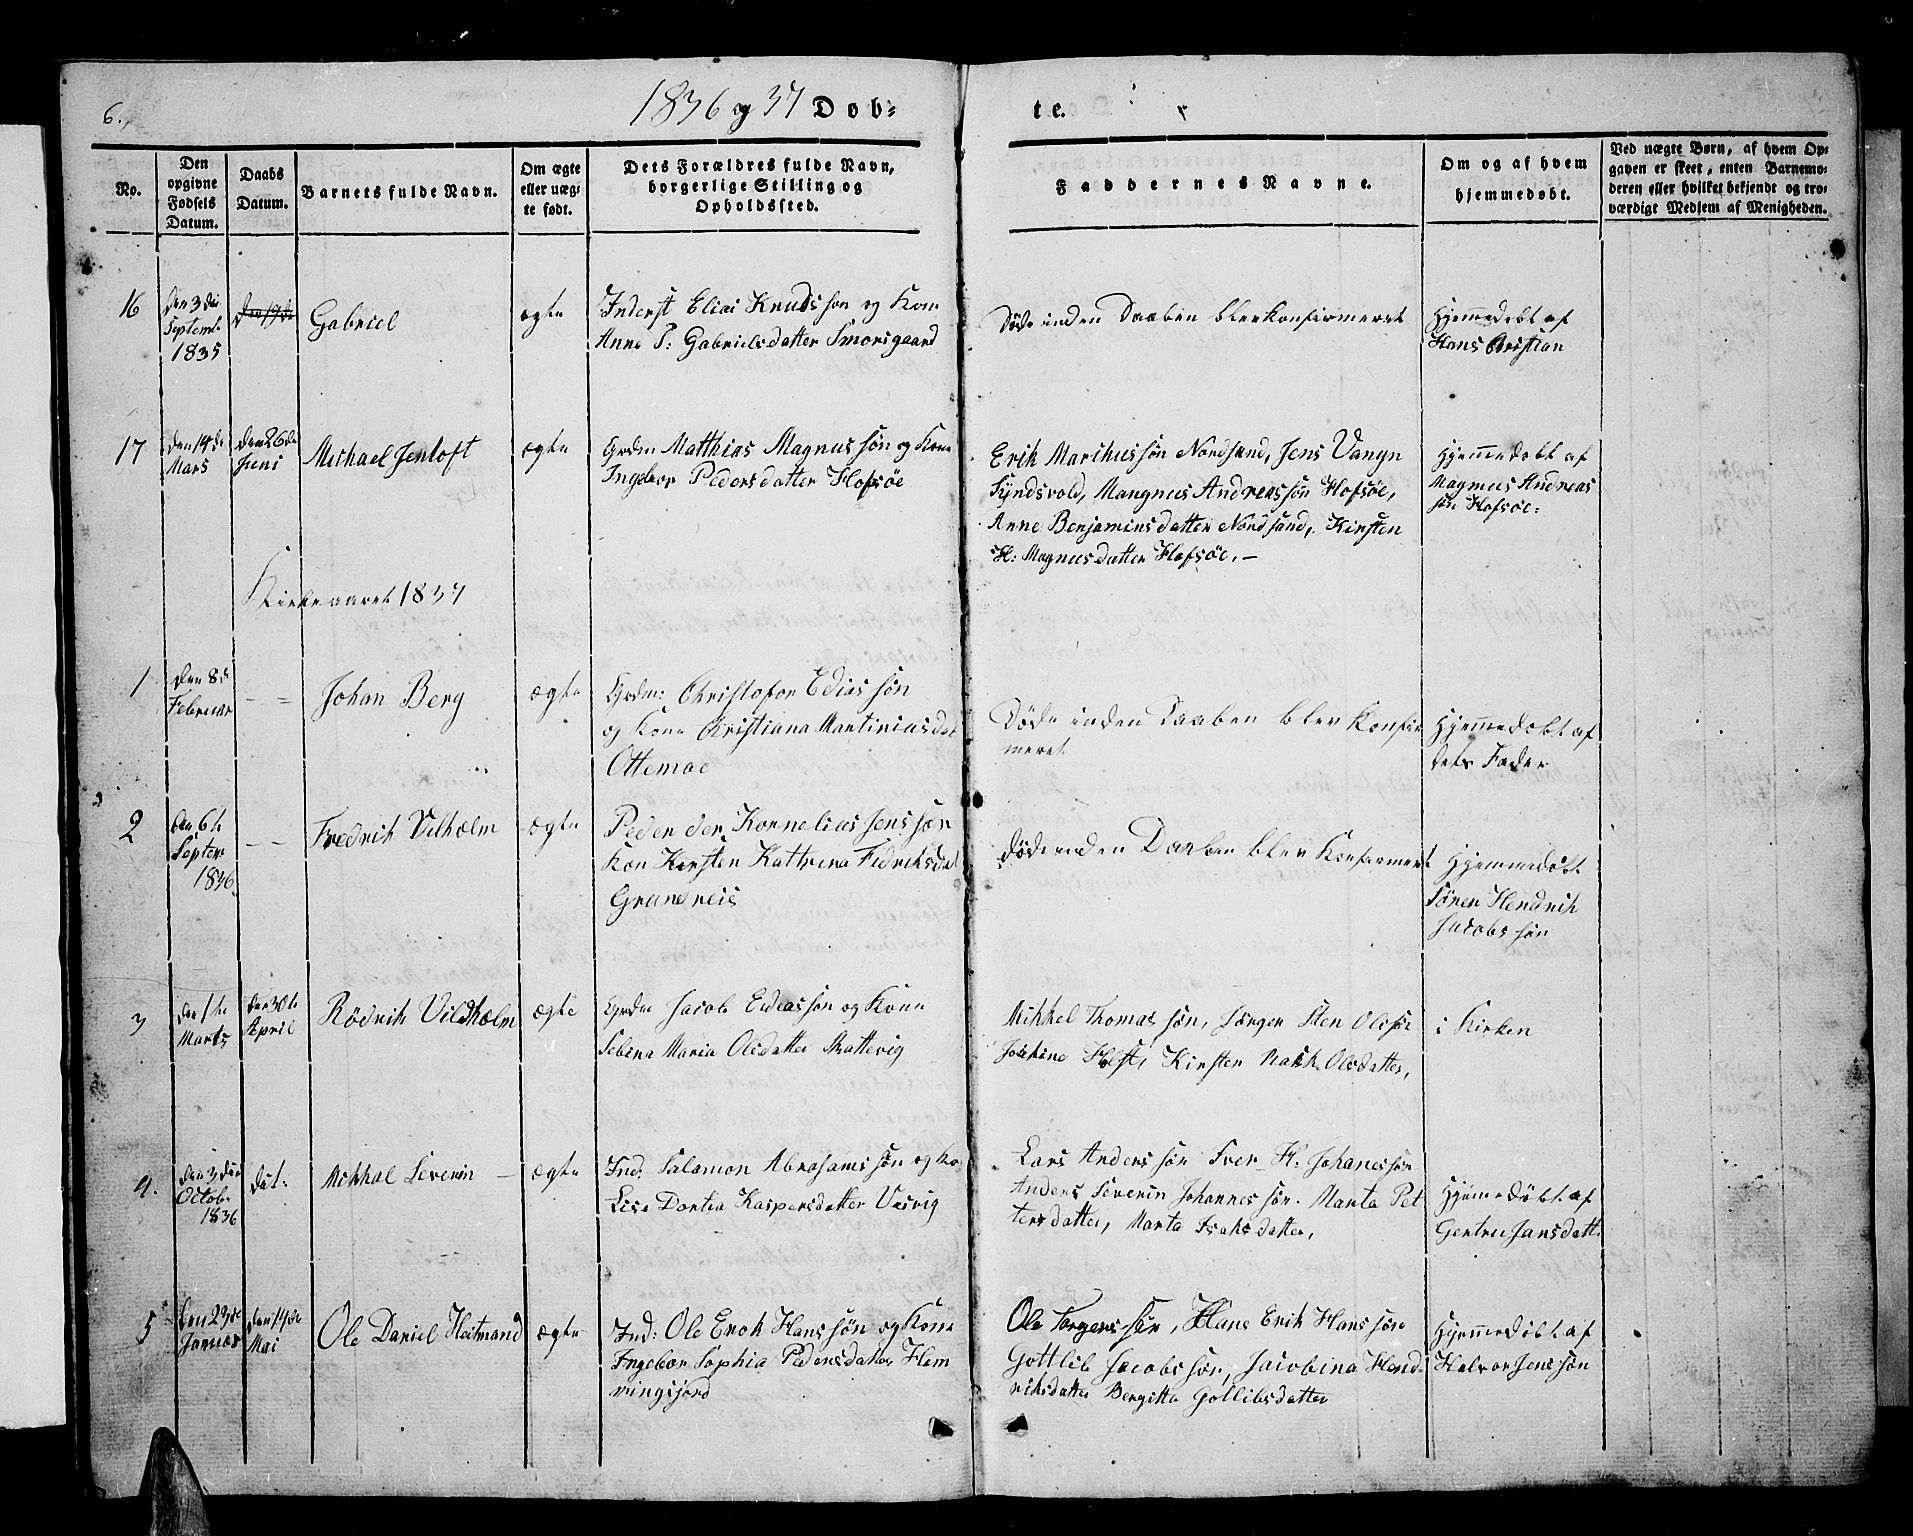 6.
1836 og 37 Døb-
te.
No.
Den
opgivne
Fødsels
Datum.
Daabs
Datum.
Barnets fulde Navn.
Om ægte
eller uæg-
te født.
Dets Forældres fulde Navn,
borgerlige Stilling og
Opholdssted.
Faddernes Navne.
Om og af hvem
hjemmedøbt.
Ved uægte Børn, af hvem Op-
gaven er skeet, enten Barnemo-
deren eller hvilket bekjendt og tro-
værdigt Medlem af Menigheden.
16
den 3die
Septemb.
1835
Gabriel
ægte
Inderst Elias Knudssøn og Kone
Anne P: Gabrielsdatter Smorsgaard
Døde inden Daaben blev konfirmeret
Hjemmedøbt af
Hans Christian
17
den 14de
Mars
den 26de
Juni
Michael Jentoft
ægte
Grdm Matthias Magnussøn og Kone
Ingebor Pedersdatter Hofsöe
Erik Marthussøn Nordsand, Jens Vangn
Syndsvold, Mangnus Andreassøn Hofsöe,
Anne Benjaminsdatter Nordsand, Kirsten
H: Magnusdatter Hofsöe.
Hjemmedøbt af
Magnus Andreas
søn Hofsöe:
Kirkeaaret 1837
1
den 8de
Februar
Johan Berg
ægte
Grdm: Christofor Ediassøn
og Kone Christiana Martiniasdat
Ottemoe
Døde inden Daaben blev Konfir
meret
Hjemmedøbt af
dets Fader
2
den 6te
Septem
1836.
Fredrik Vilhelm
ægte
Kornelius Jenssøn
Kon Kirsten Kattrina Fedriksdat
Døde inden Daaben blev Konfirmert
Hjemmedøbt
Søren Hendrik
Jacobssøn
3
den 1te
Marts
den 30te
April
Rödrik Vildhelm
ægte
Grdm Jacob Ediassøn og Kone
Sebina Maria Olsdatter Skattevig
Mikkel Thomassøn, Jørgen Sten Olssøn
Josehine Holst, Kirsten Olsdatter,
i Kirken
4.
den 3die
Octob.
1836
dit.
Mikkal Severin
ægte
Ind: Salamon Abrahamssøn og Ko
Lise Dortea Kaspersdatter Vasvig
Lars Anderssøn Iver H. Johanessøn
Anders Severin Johannessøn. Marta Pet
tersdatter, Marta Isaksdatter,
Hjemedøbt af
Gertru Jansdatt.
5
den 23de
Januar
den 14de
Mai
Ole Daniel Heitmand
ægte
Ind: Ole Erok Hanssøn og Kone
Ingebor Sophia Pedersdatter Hem
mingsjord
Ole Torgerssøn, Hans Erik Hanssøn
Gottlib Jacobssøn, Jacobina Hend
riksdatter Bergitta Gollibsdatter
Hjemmedøbt af
Halvor Jenssøn